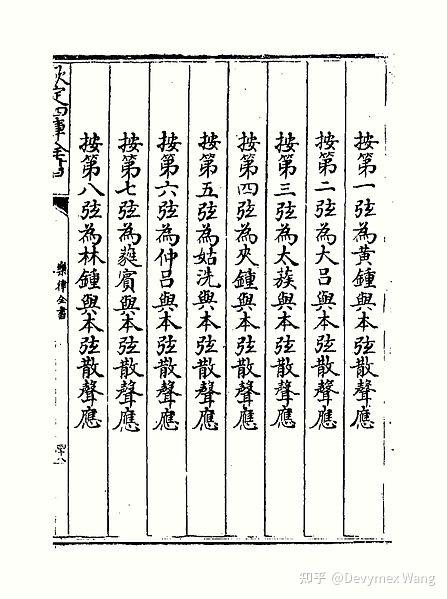 按第一弦為黃鍾與本弦散聲應
按第二弦為大呂與本弦散聲應
按第三弦為太蔟與本弦散聲應
按第四弦為夾鍾與本弦散聲應
按第五弦為姑洗與本弦散聲應
按第六弦為仲呂與本弦散聲應
按第七弦為蕤賓與本弦散聲應
按第八弦為林鍾與本弦散聲應
欽定四庫全書
樂律全書
知乎 @Devymex Wang